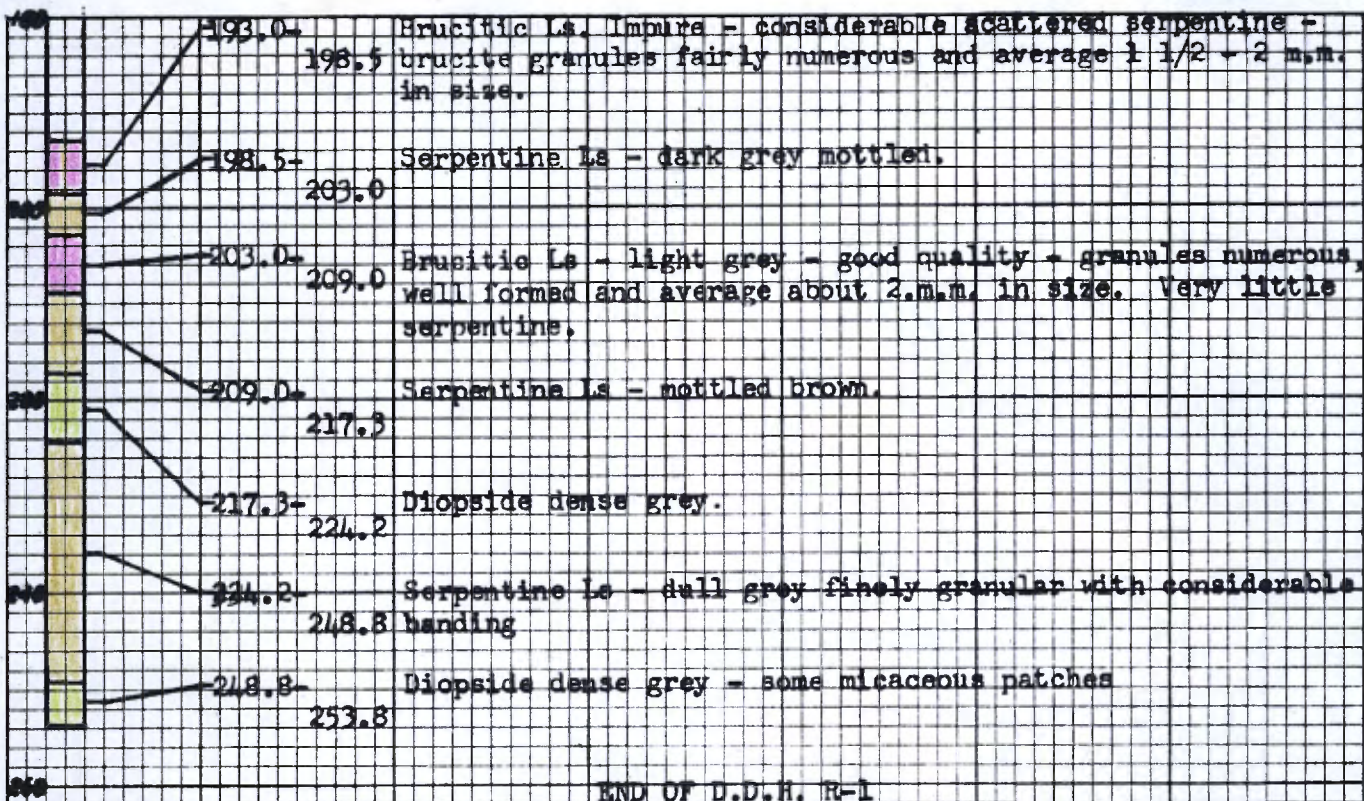 193.0- Brucitic Ls. Impure - considerable scattered serpentine -
198.5 brucite granules fairly numerous and average 1 1/2 - 2 m.m.
in size.
198.5- Serpentine Ls - dark grey mottled.
203.0
200
203.0- Brucitic Ls - light grey - good quality - granules numerous,
209.0 well formed and average about 2.m.m. in size. Very little
serpentine.
209.0- Serpentine Ls - mottled brown.
217.3
217.3- Diopside dense grey.
224.2
224.2- Serpentine Ls - dull grey finely granular with considerable
248.8 banding
248.8- Diopside dense grey - some micaceous patches
253.8
260 END OF D.D.H. R-1